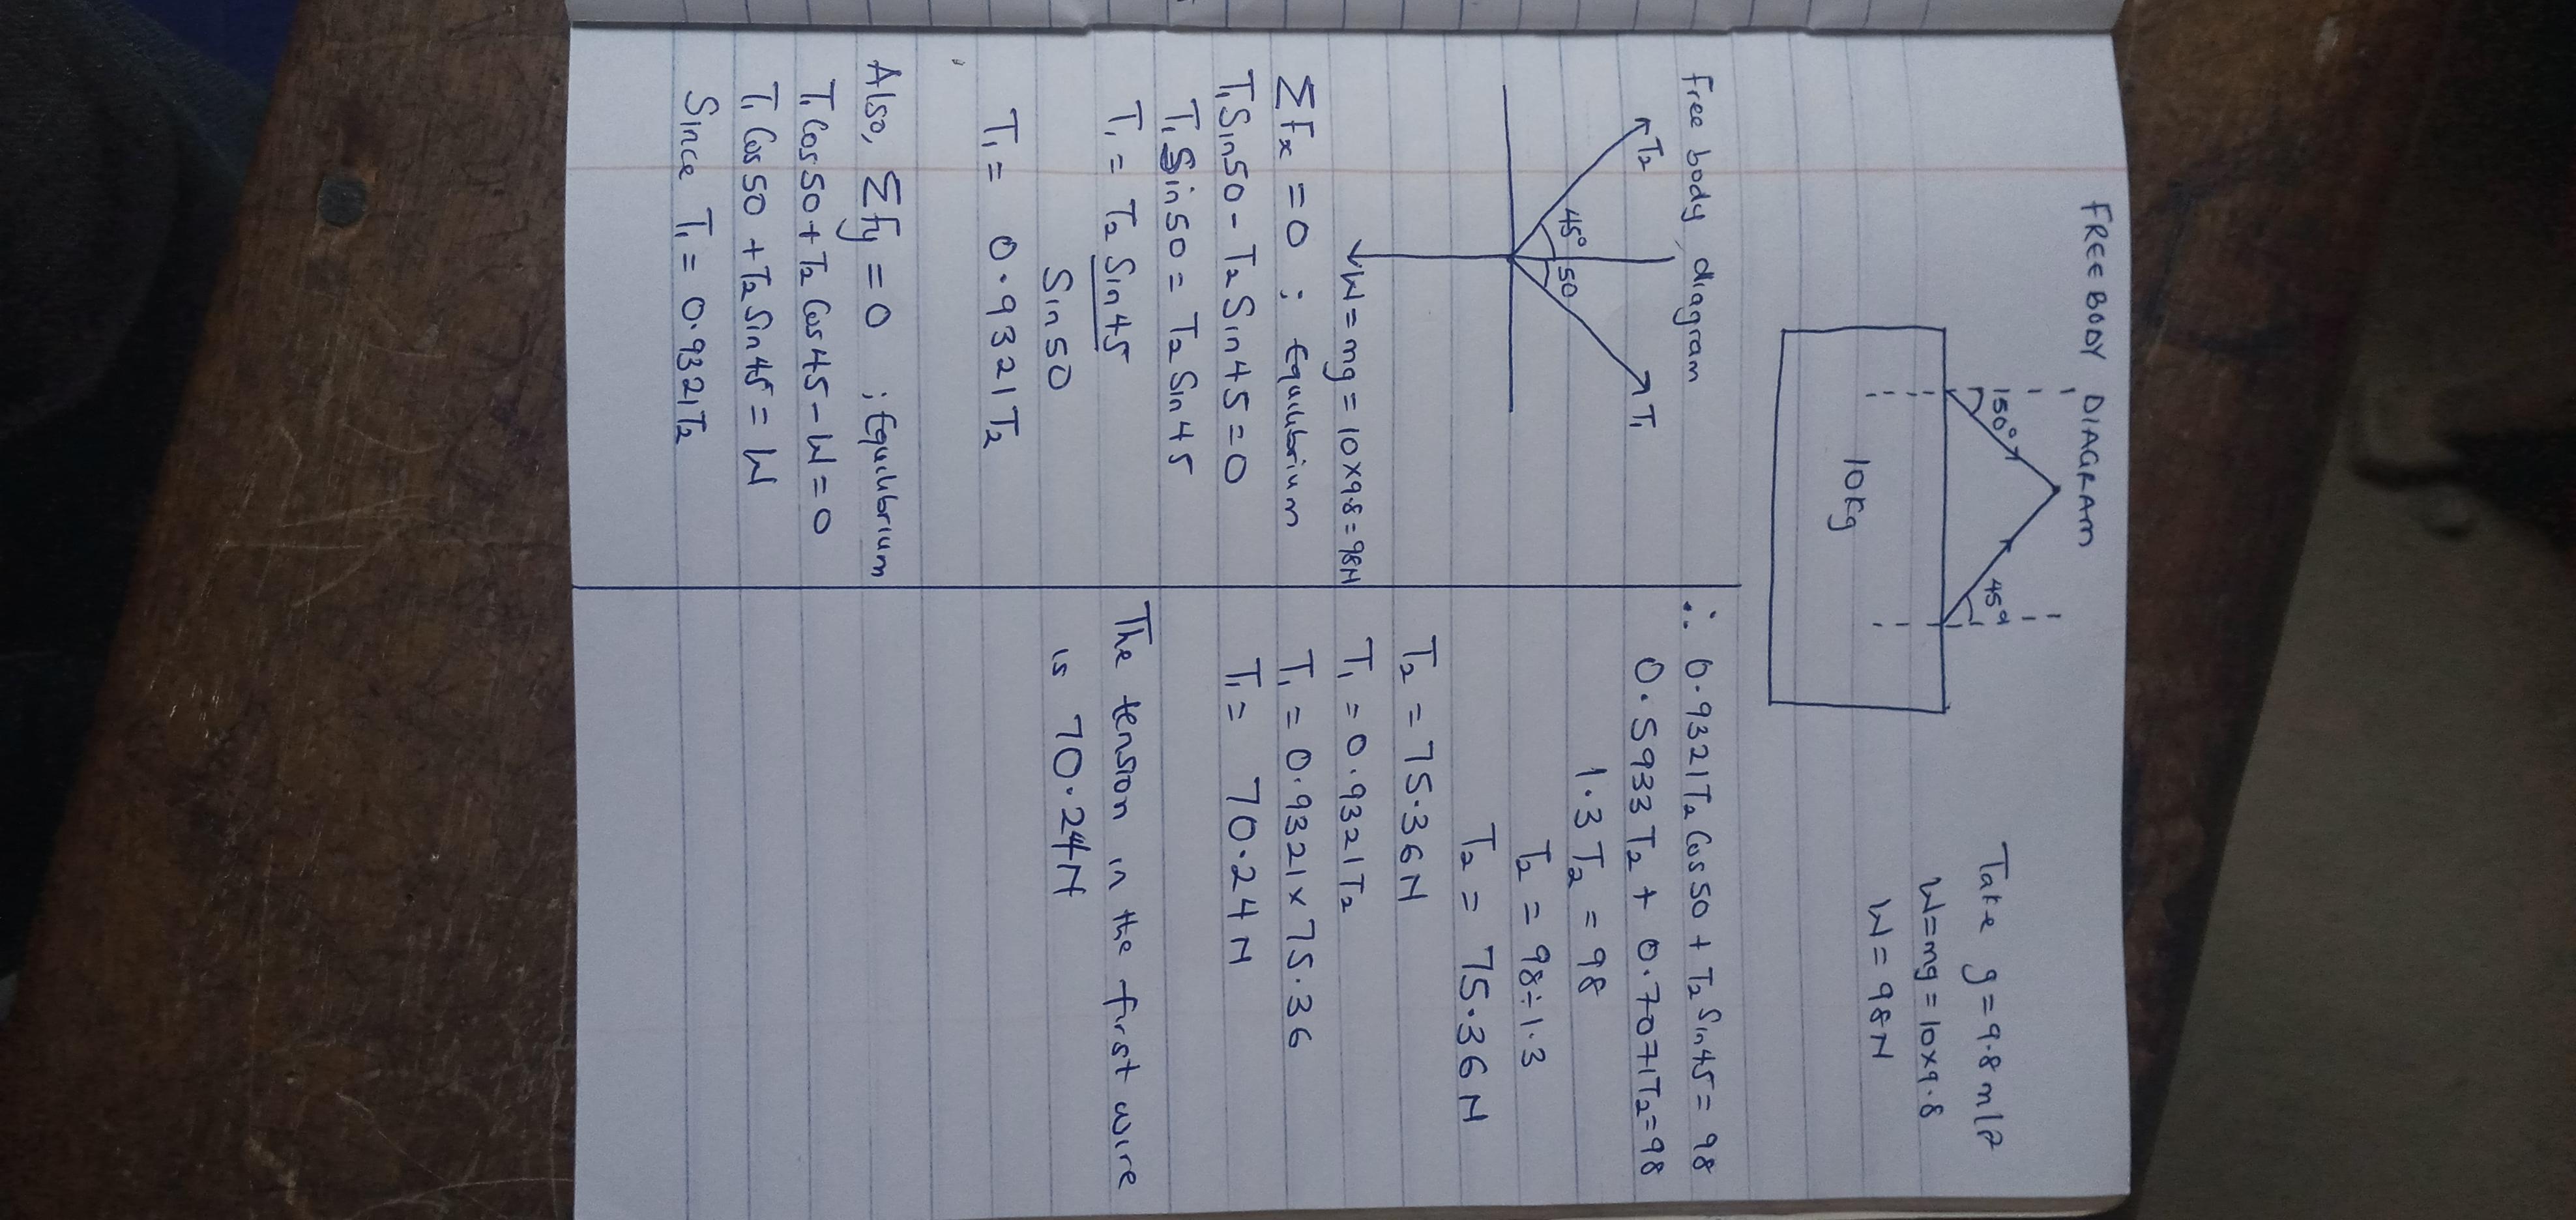 FREE BODY DIAGRAM
50°
45°
10kg
Take g = 9.8 m/s²
W=mg = 10×9.8
W = 98N
Free body diagram
T₂
T₁
45°
50
W = mg = 10×9.8 = 98N
ΣFx = 0 ; Equilibrium
T₁Sin50 - T₂ Sin45 = 0
T₁Sin50 = T₂ Sin45
T₁ = T₂ Sin45
Sin50
T₁ = 0.9321T₂
Also, ΣFy = 0 ; Equilibrium
T₁Cos50 + T₂ Cos45 - W = 0
T₁Cos50 + T₂ Sin45 = W
Since T₁ = 0.9321T₂
∴ 0.9321T₂ Cos50 + T₂ Sin45 = 98
0.5933T₂ + 0.7071T₂ = 98
1.3T₂ = 98
T₂ = 98÷1.3
T₂ = 75.36N
T₂ = 75.36N
T₁ = 0.9321T₂
T₁ = 0.9321×75.36
T₁ = 70.24N
The tension in the first wire
is 70.24N